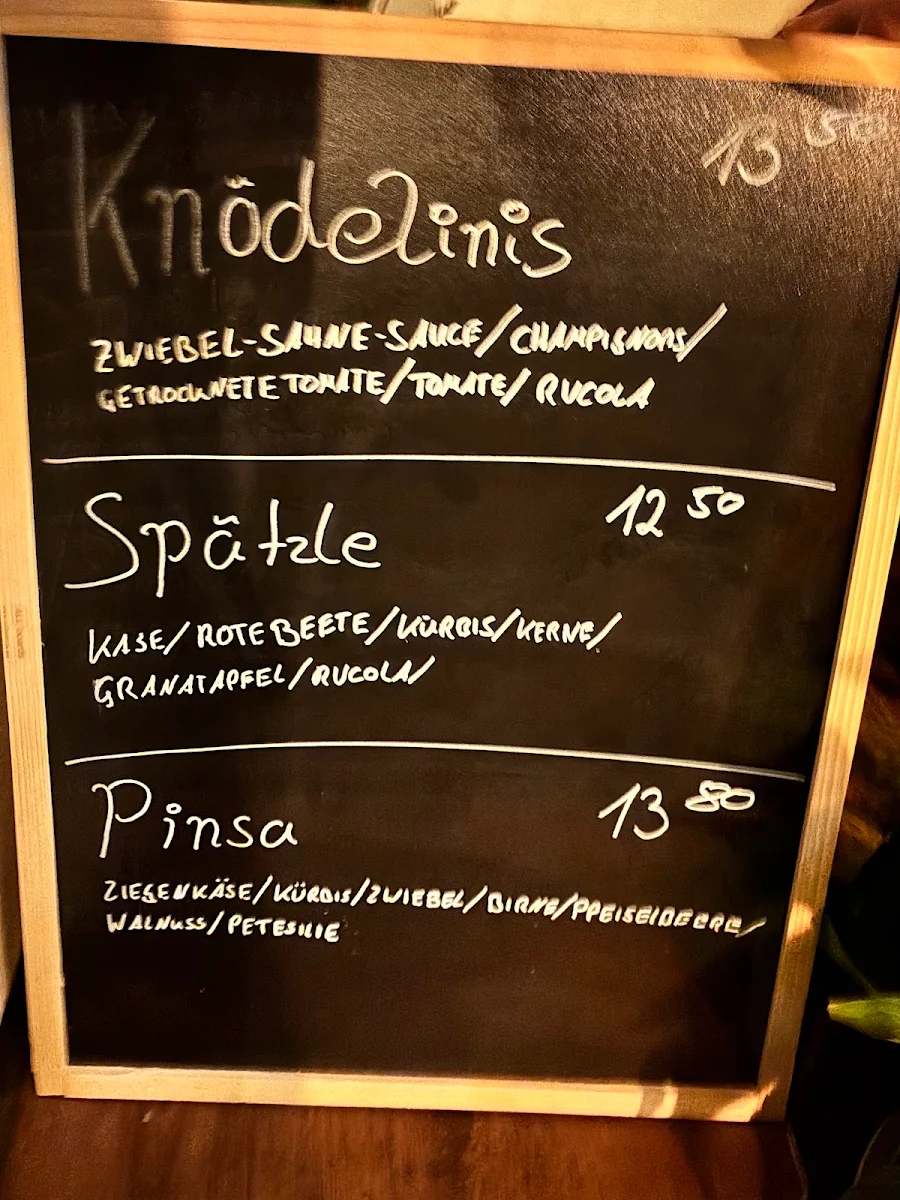 Knödelinis 13 50
ZWIEBEL-SAHNE-SAUCE/CHAMPIGNONS/
GETROCKNETE TOMATE/TOMATE/RUCOLA
Spätzle 12 50
KÄSE/ROTE BEETE/KÜRBIS/KERNE/
GRANATAPFEL/RUCOLA/
Pinsa 13 80
ZIEGENKÄSE/KÜRBIS/ZWIEBEL/BIRNE/PREISELBEERE/
WALNUSS/PETERSILIE